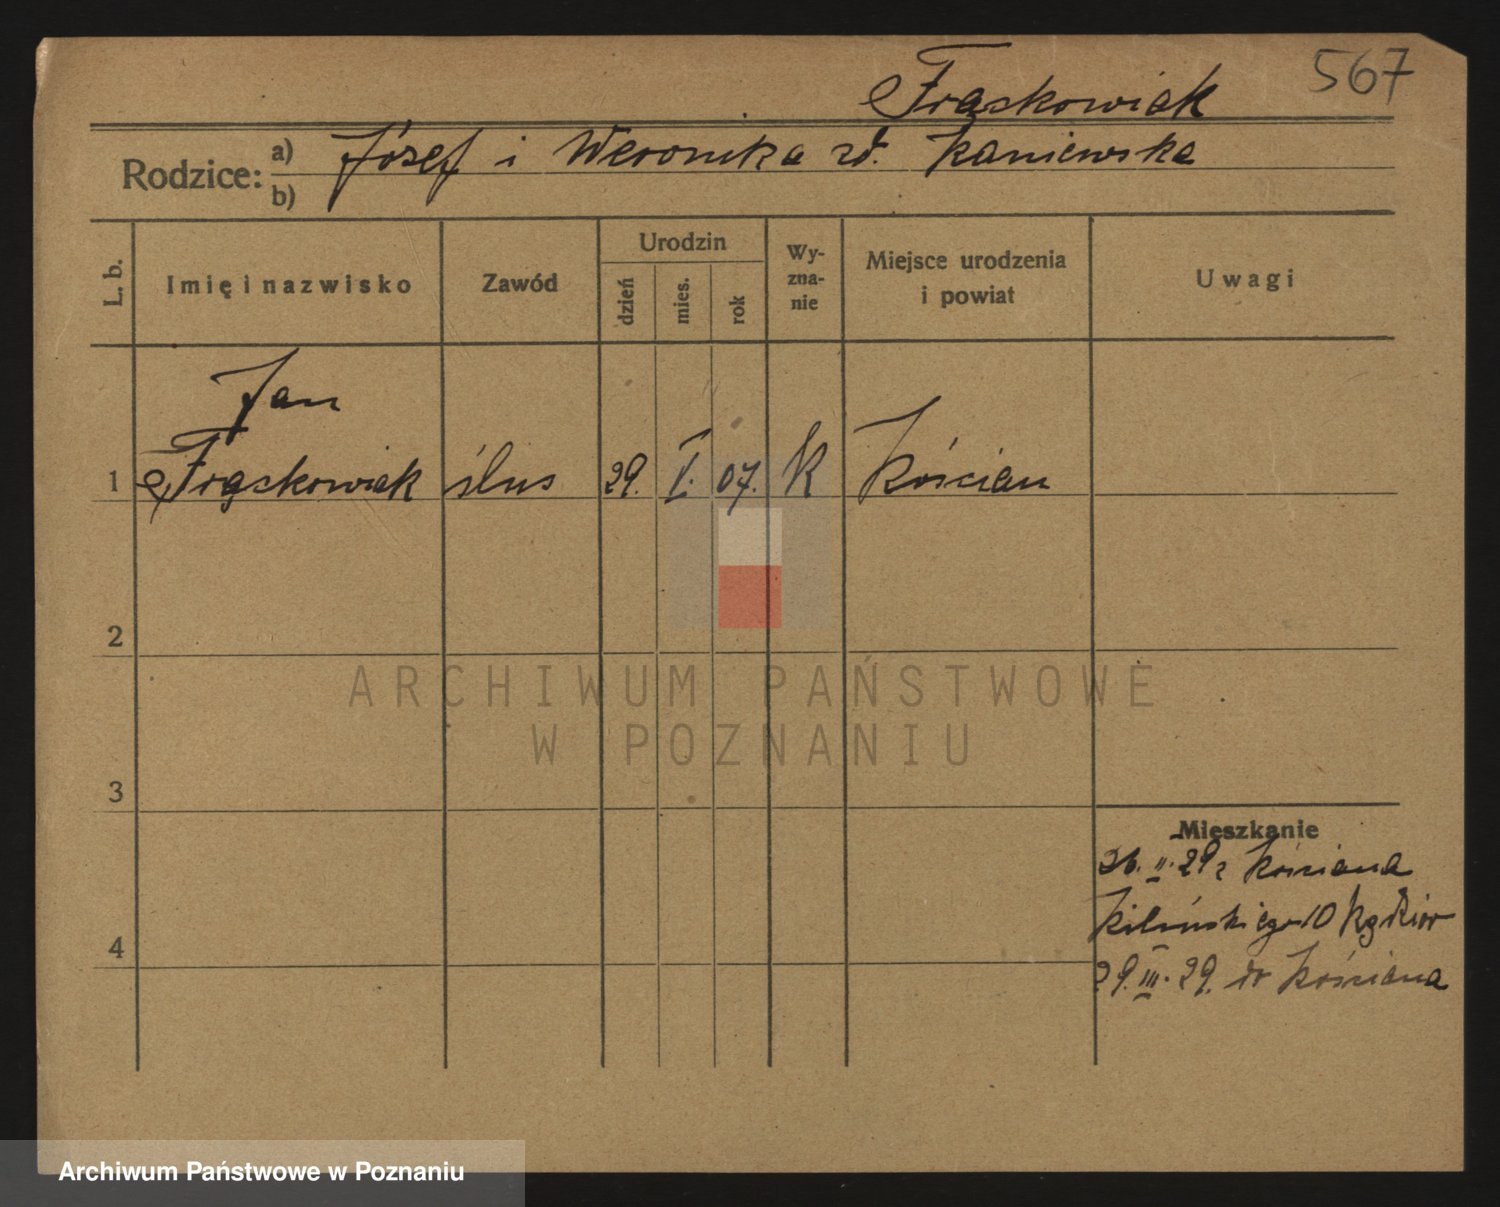 567
Frąckowiak
Rodzice: a) Józef i Weronika zd. Kaniewska
b)
L. b. Imię i nazwisko Zawód Urodzin dzień mies. rok Wyznanie Miejsce urodzenia i powiat Uwagi
Jan
1 Frąckowiak ślus 29. V. 07. K Kościan
2
ARCHIWUM PAŃSTWOWE
W POZNANIU
3
Mieszkanie
26. II. 29 z Kościana
Kilińskiego 10
4
29. III. 29. do Kościana
Archiwum Państwowe w Poznaniu